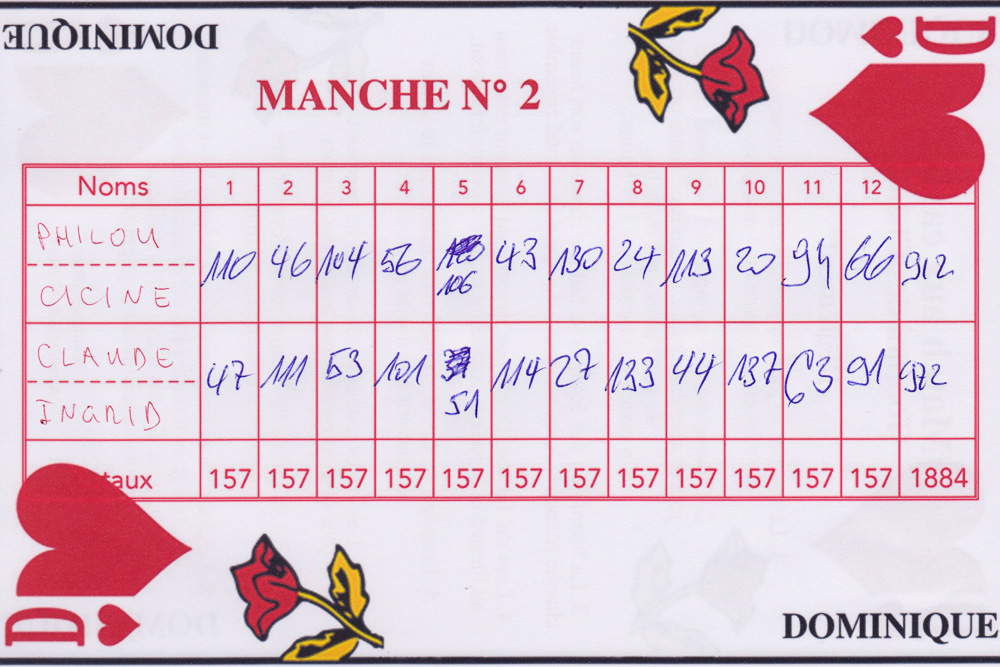 DOMINIQUE
D
MANCHE N° 2
Noms 1 2 3 4 5 6 7 8 9 10 11 12
PHILOU
CICINE
110 46 104 56 106 43 130 24 113 20 94 66 912
CLAUDE
INGRID
47 111 53 101 51 114 27 133 44 137 63 91 972
taux 157 157 157 157 157 157 157 157 157 157 157 157 1884
D
DOMINIQUE